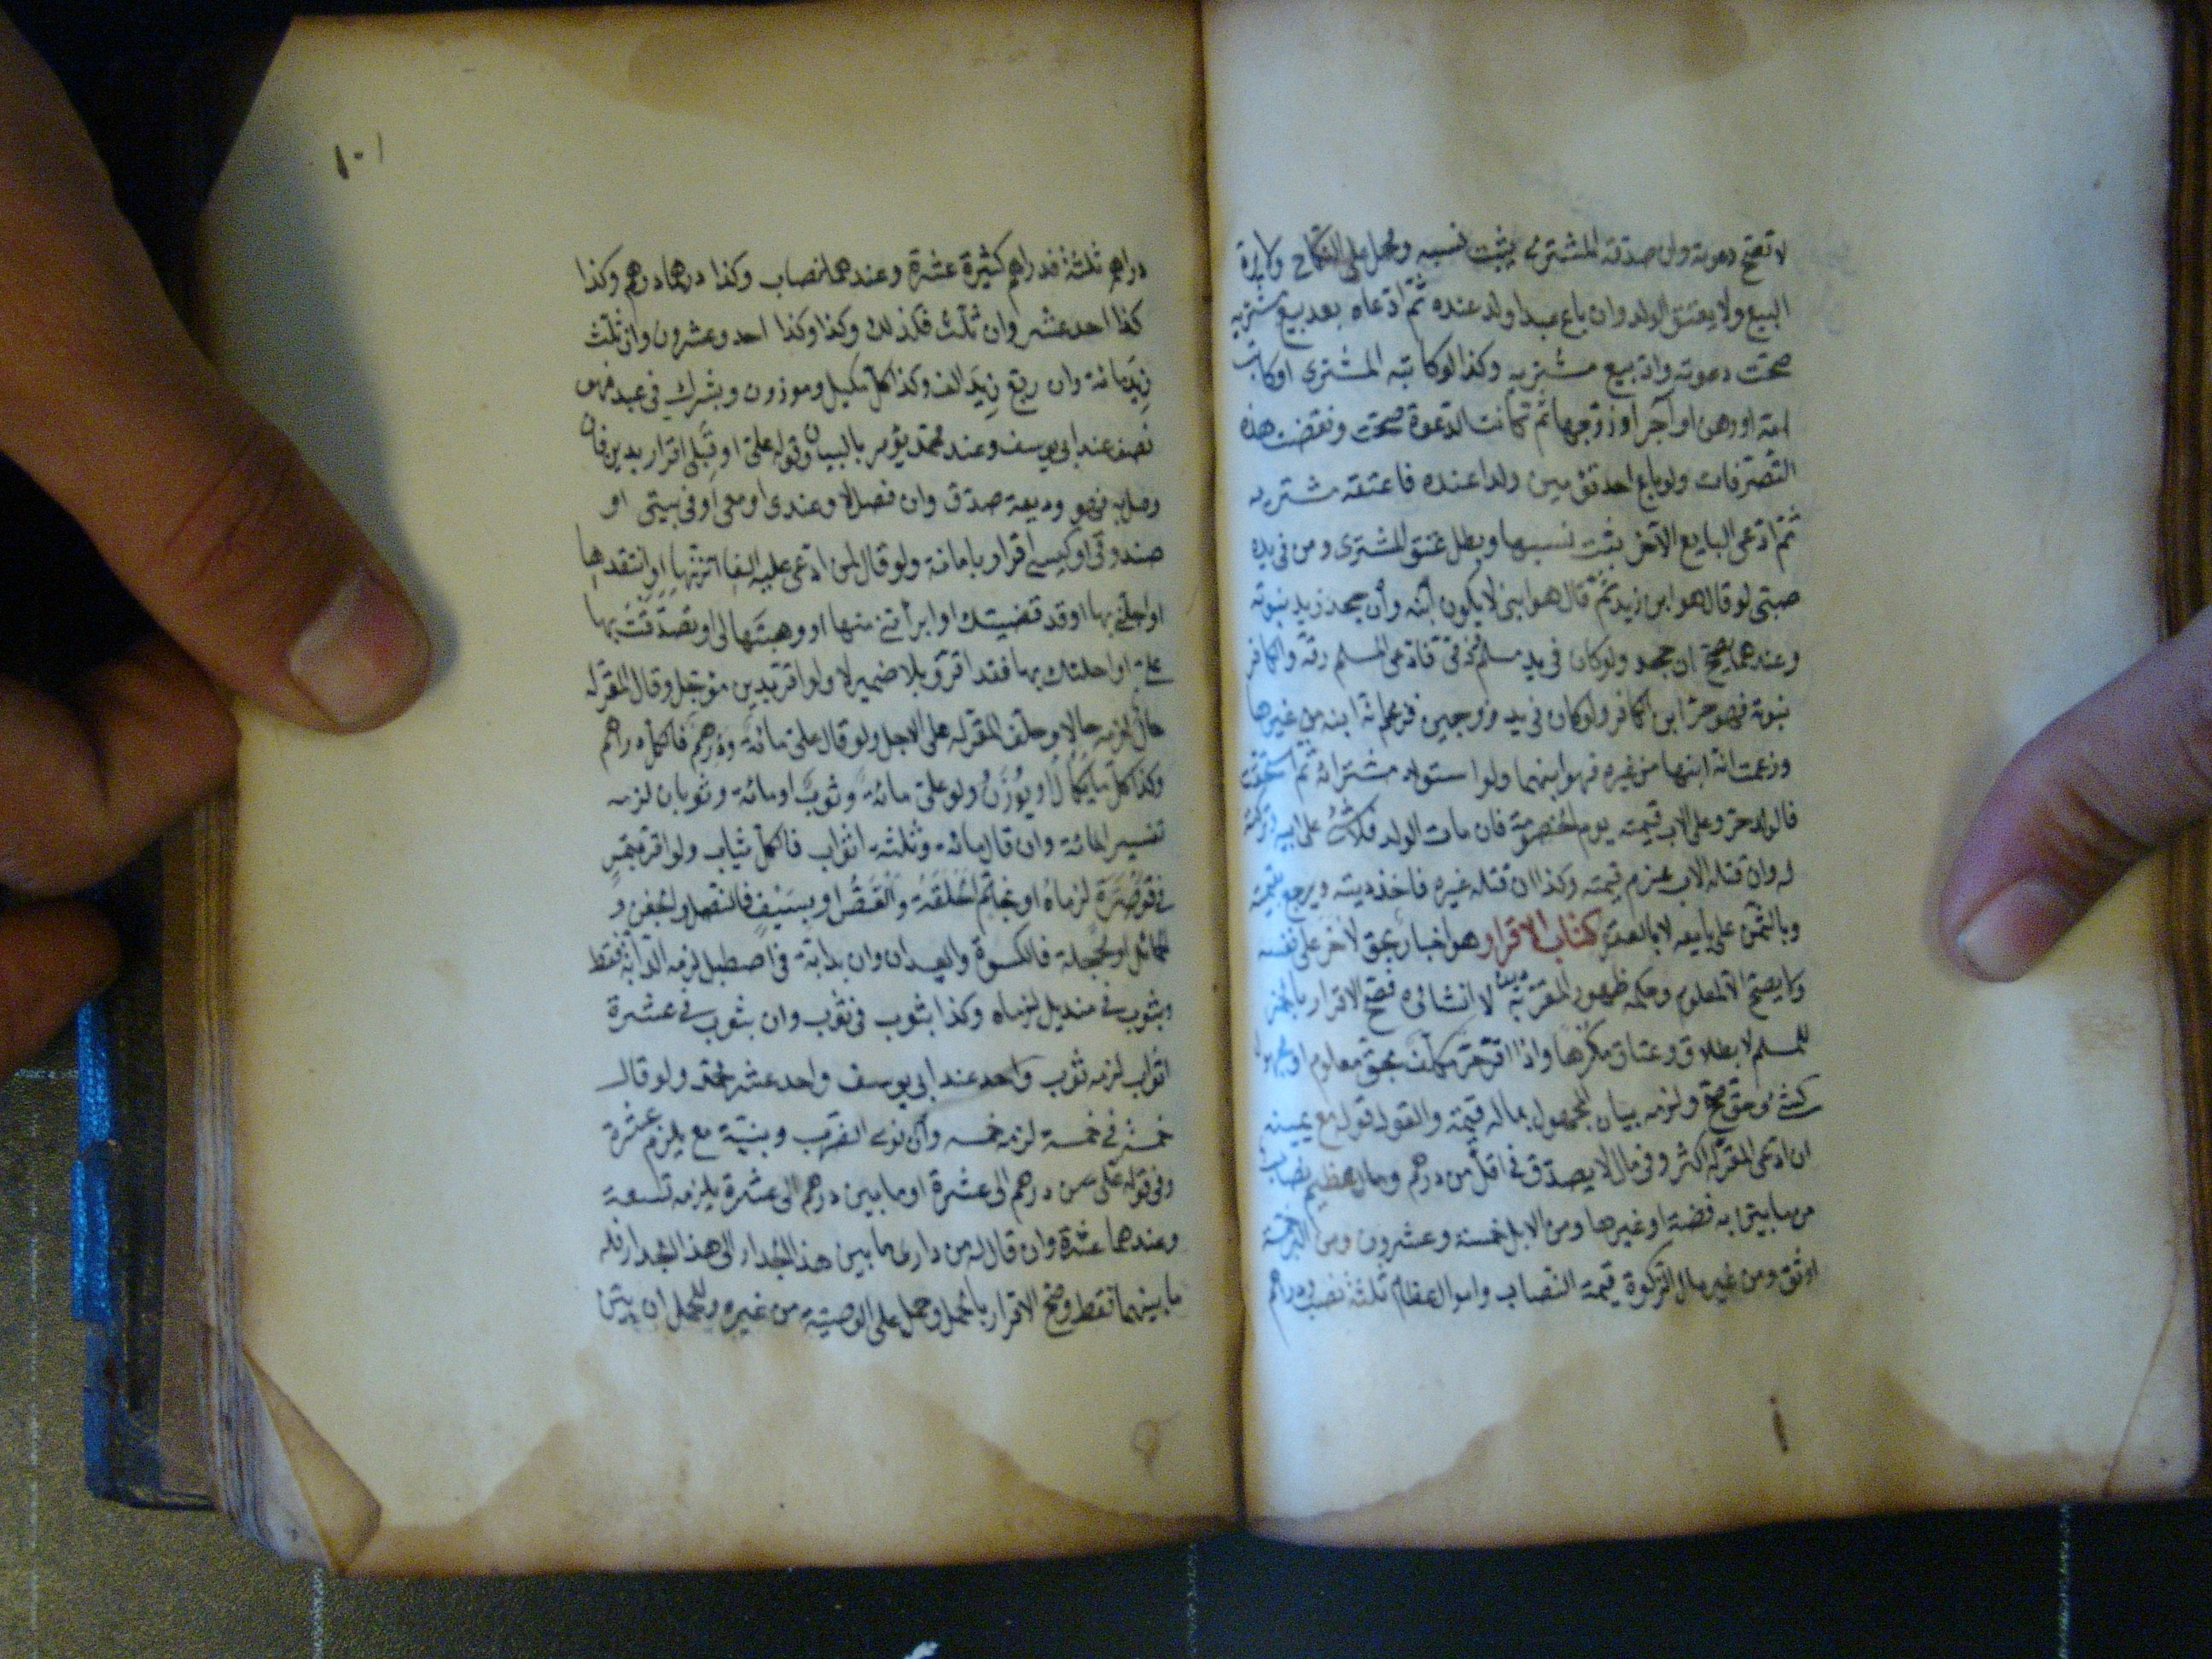 لا تصح دعوته وان صدقه المشتري يثبت نسبه ويحمل على النكاح ولا يرد
البيع ولا يعتق الولد وان باع عبدا ولد عنده ثم ادعاه بعد بيع مشتريه
صحت دعوته وارد بيع مشتريه وكذا لو كاتبه المشترى او كاتب
امه او رهن او آجر او زوجها ثم كانت الدعوة صحت ونقضت هذه
التصرفات ولو باع احد توئمين ولدا عنده فاعتقه مشتريه
ثم ادعى البايع الآخر يثبت نسبهما وبطل عتق المشترى ومن فى يده
صبى لو قال هو ابن زيد ثم قال هو ابنى لا يكون ابنه وان جحد زيد بنوته
وعندهما يصح ان جحد ولو كان فى يد مسلم وذمى فادعى المسلم رقه والكافر
بنوته فهو حر ابن الكافر ولو كان فى يد زوجين فزعم انه ابنه من غيرها
وزعمت انه ابنها من غيره فهو ابنهما ولو استولد مشتراته ثم استحقت
فالولد حر وعلى الاب قيمته يوم الخصومة فان مات الولد فلا شئ على ابيه وتركته
له وان قتله الاب غرم قيمته وكذا ان قتله غيره فاخذ ديته ويرجع بقيمته
وبالثمن على بايعه لا بالعقر كتاب الاقرار هو اخبار بحق لآخر على نفسه
ولا يصح الا لمعلوم وحكمه ظهور المقر به لا انشائه فصح الاقرار بالخمر
للمسلم لا بطلاق وعتاق مكرها واذا اقر حر مكلف بحق معلوم او مجهول
كشئ وحق صح ولزمه بيان المجهول بماله قيمة والقول قوله مع يمينه
ان ادعى المقر له اكثر وفى مال لا يصدق فى اقل من درهم ومال عظيم نصاب
مما يبين به فضة او غيرها ومن الابل خمسة وعشرون ومن البر خمسة
اوسق ومن غير مال الزكوة قيمة النصاب واموال عظام ثلثة نصب ودراهم
١٠١
دراهم ثلثة فدراهم كثيرة عشرة وعندهما نصاب وكذا درهما درهم وكذا
كذا احد عشر وان ثلث فكذلك وكذا وكذا احد وعشرون وان ثلث
زيد مائة وان ربع زيد الف وكذا كل مكيل وموزون وبشرك فى عبد فهو
نصف عند ابى يوسف وعند محمد يؤمر بالبيان وقوله على او قبلى اقرار بدين فان
وصل به هو وديعة صدق وان فصل لا وعندى او معى او فى بيتى او
صندوقى او كيسى اقرار بامانة ولو قال لمن ادعى عليه الفا اتزنها او انتقدها
او اجلنى بها او قد قضيتك او ابرأتنى منها او وهبتها لى او تصدقت بها
على او احلتك بها فقد اقر وبلا ضمير لا ولو اقر بدين مؤجل وقال المقر له
حال لزمه حالا وحلف المقر له على الاجل ولو قال على مائة ودرهم فالكل دراهم
وكذا كل ما يكال او يوزن ولو على مائة وثوب او مائة وثوبان لزمه
تفسير المائة وان قال مائة وثلثة اثواب فالكل ثياب ولو اقر بتمر
فى قوصرة لزماه او بخاتم الحلقة والفص او بسيف فالنصل والجفن و
الحمائل او بحجلة فالكسوة والعيدان وان بدابة فى اصطبل لزمه الدابة فقط
وبثوب فى منديل لزماه وكذا بثوب فى ثوب وان بثوب فى عشرة
اثواب لزمه ثوب واحد عند ابى يوسف واحد عشر عند محمد ولو قال
خمسة فى خمسة لزمه خمسة وان نوى الضرب وبنية مع يلزم عشرة
وفى قوله على من درهم الى عشرة او ما بين درهم الى عشرة يلزمه تسعة
وعندهما عشرة وان قال له من دارى ما بين هذا الجدار الى هذا الجدار فله
ما بينهما فقط وصح الاقرار بالحمل وحمل على الوصية من غيره وللحمل ان بين